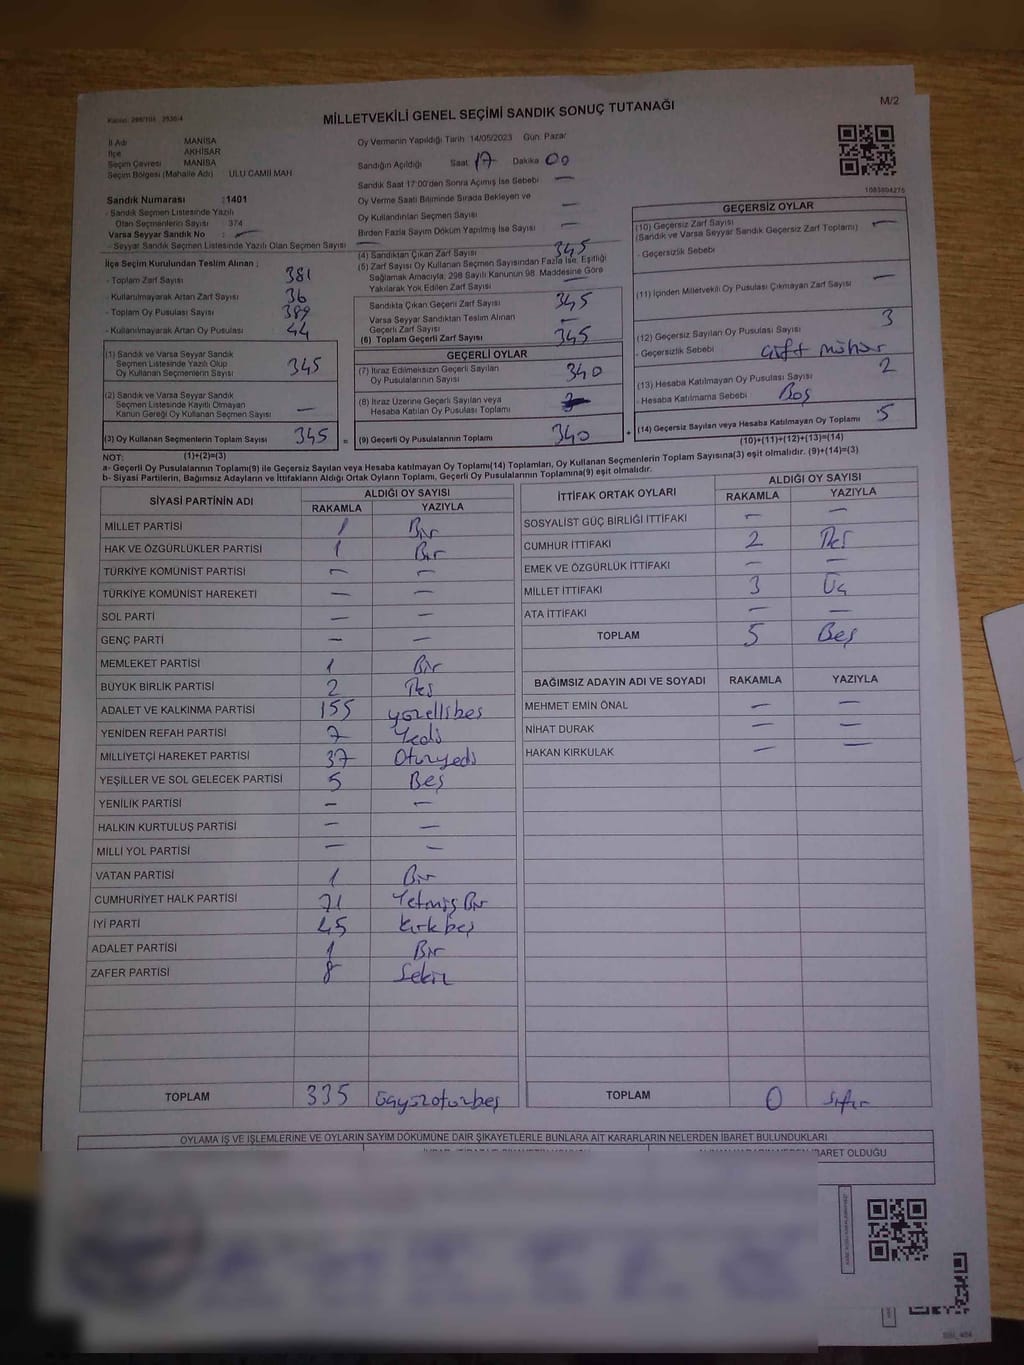 MİLLETVEKİLİ GENEL SEÇİMİ SANDIK SONUÇ TUTANAĞI
M/2
İl Adı MANİSA
İlçe AKHİSAR
Seçim Çevresi MANİSA
Seçim Bölgesi (Mahalle Adı) ULU CAMİİ MAH
Sandık Numarası :1401
- Sandık Seçmen Listesinde Yazılı
Olan Seçmenlerin Sayısı 374
Varsa Seyyar Sandık No : —
- Seyyar Sandık Seçmen Listesinde Yazılı Olan Seçmen Sayısı —
Oy Vermenin Yapıldığı Tarih 14/05/2023 Gün: Pazar
Sandığın Açıldığı Saat 17 Dakika 00
Sandık Saat 17:00'den Sonra Açımış İse Sebebi —
Oy Verme Saati Bitiminde Sırada Bekleyen ve
Oy Kullandırılan Seçmen Sayısı —
Birden Fazla Sayım Döküm Yapılmış İse Sayısı —
1083804275
İlçe Seçim Kurulundan Teslim Alınan ;
- Toplam Zarf Sayısı 381
- Kullanılmayarak Artan Zarf Sayısı 36
- Toplam Oy Pusulası Sayısı 389
- Kullanılmayarak Artan Oy Pusulası 44
(1) Sandık ve Varsa Seyyar Sandık
Seçmen Listesinde Yazılı Olup
Oy Kullanan Seçmenlerin Sayısı 345
(2) Sandık ve Varsa Seyyar Sandık
Seçmen Listesinde Kayıtlı Olmayan
Kanun Gereği Oy Kullanan Seçmen Sayısı —
(3) Oy Kullanan Seçmenlerin Toplam Sayısı 345 =
(4) Sandıktan Çıkan Zarf Sayısı 345
(5) Zarf Sayısı Oy Kullanan Seçmen Sayısından Fazla İse, Eşitliği
Sağlamak Amacıyla; 298 Sayılı Kanunun 98. Maddesine Göre
Yakılarak Yok Edilen Zarf Sayısı —
Sandıkta Çıkan Geçerli Zarf Sayısı 345
Varsa Seyyar Sandıktan Teslim Alınan
Geçerli Zarf Sayısı —
(6) Toplam Geçerli Zarf Sayısı 345
GEÇERLİ OYLAR
(7) İtiraz Edilmeksizin Geçerli Sayılan
Oy Pusulalarının Sayısı 340
(8) İtiraz Üzerine Geçerli Sayılan veya
Hesaba Katılan Oy Pusulası Toplamı
(9) Geçerli Oy Pusulalarının Toplamı 340 +
GEÇERSİZ OYLAR
(10) Geçersiz Zarf Sayısı —
(Sandık ve Varsa Seyyar Sandık Geçersiz Zarf Toplamı)
- Geçersizlik Sebebi
(11) İçinden Milletvekili Oy Pusulası Çıkmayan Zarf Sayısı —
(12) Geçersiz Sayılan Oy Pusulası Sayısı 3
- Geçersizlik Sebebi Çift mühür
(13) Hesaba Katılmayan Oy Pusulası Sayısı 2
- Hesaba Katılmama Sebebi Boş
(14) Geçersiz Sayılan veya Hesaba Katılmayan Oy Toplamı 5
NOT: (1)+(2)=(3)
(10)+(11)+(12)+(13)=(14)
a- Geçerli Oy Pusulalarının Toplamı(9) ile Geçersiz Sayılan veya Hesaba katılmayan Oy Toplamı(14) Toplamları, Oy Kullanan Seçmenlerin Toplam Sayısına(3) eşit olmalıdır. (9)+(14)=(3)
b- Siyasi Partilerin, Bağımsız Adayların ve İttifakların Aldığı Ortak Oyların Toplamı, Geçerli Oy Pusulalarının Toplamına(9) eşit olmalıdır.
SİYASİ PARTİNİN ADI ALDIĞI OY SAYISI
RAKAMLA YAZIYLA
MİLLET PARTİSİ 1 Bir
HAK VE ÖZGÜRLÜKLER PARTİSİ 1 Bir
TÜRKİYE KOMÜNİST PARTİSİ — —
TÜRKİYE KOMÜNİST HAREKETİ — —
SOL PARTİ — —
GENÇ PARTİ — —
MEMLEKET PARTİSİ 1 Bir
BÜYÜK BİRLİK PARTİSİ 2 İki
ADALET VE KALKINMA PARTİSİ 155 yüzellibeş
YENİDEN REFAH PARTİSİ 7 Yedi
MİLLİYETÇİ HAREKET PARTİSİ 37 Otuzyedi
YEŞİLLER VE SOL GELECEK PARTİSİ 5 Beş
YENİLİK PARTİSİ — —
HALKIN KURTULUŞ PARTİSİ — —
MİLLİ YOL PARTİSİ — —
VATAN PARTİSİ 1 Bir
CUMHURİYET HALK PARTİSİ 71 Yetmiş Bir
İYİ PARTİ 45 Kırkbeş
ADALET PARTİSİ 1 Bir
ZAFER PARTİSİ 8 Sekiz
TOPLAM 335 üçyüzotuzbeş
İTTİFAK ORTAK OYLARI ALDIĞI OY SAYISI
RAKAMLA YAZIYLA
SOSYALİST GÜÇ BİRLİĞİ İTTİFAKI — —
CUMHUR İTTİFAKI 2 İki
EMEK VE ÖZGÜRLÜK İTTİFAKI — —
MİLLET İTTİFAKI 3 Üç
ATA İTTİFAKI — —
TOPLAM 5 Beş
BAĞIMSIZ ADAYIN ADI VE SOYADI RAKAMLA YAZIYLA
MEHMET EMİN ÖNAL — —
NİHAT DURAK — —
HAKAN KIRKULAK — —
TOPLAM 0 sıfır
OYLAMA İŞ VE İŞLEMLERİNE VE OYLARIN SAYIM DÖKÜMÜNE DAİR ŞİKAYETLERLE BUNLARA AİT KARARLARIN NELERDEN İBARET BULUNDUKLARI